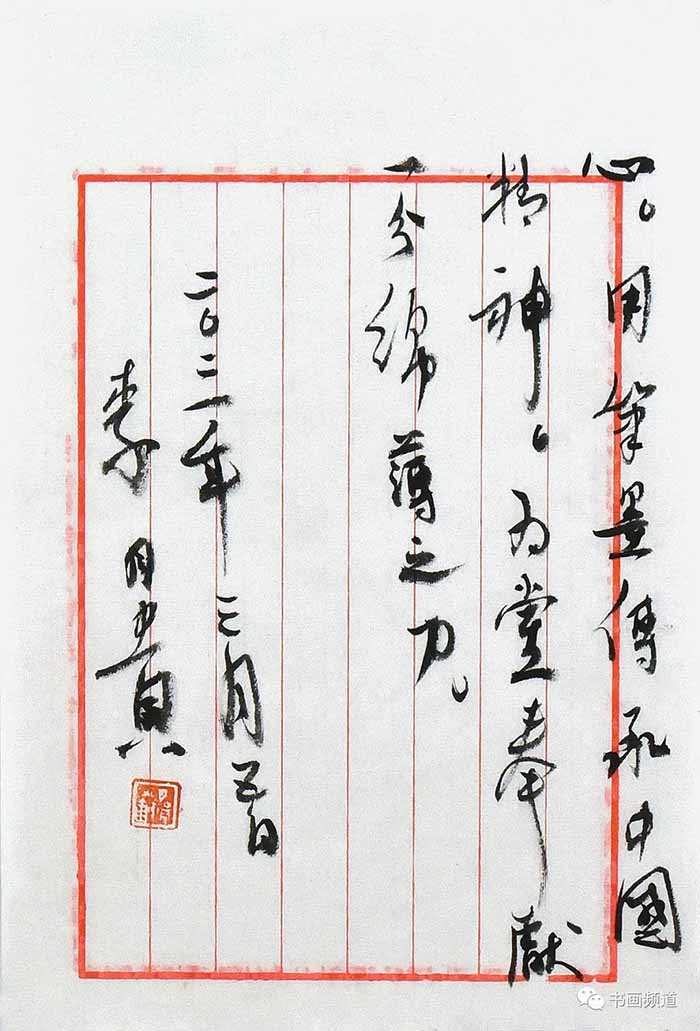 心。用筆墨傳承中國
精神。为党奉獻
一分綿薄之力。
二〇二一年三月五日
李
书画频道